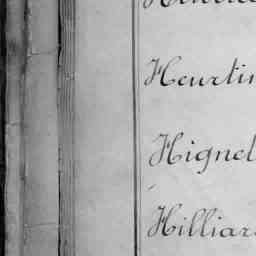 Heurtin
Hignel
Hilliar